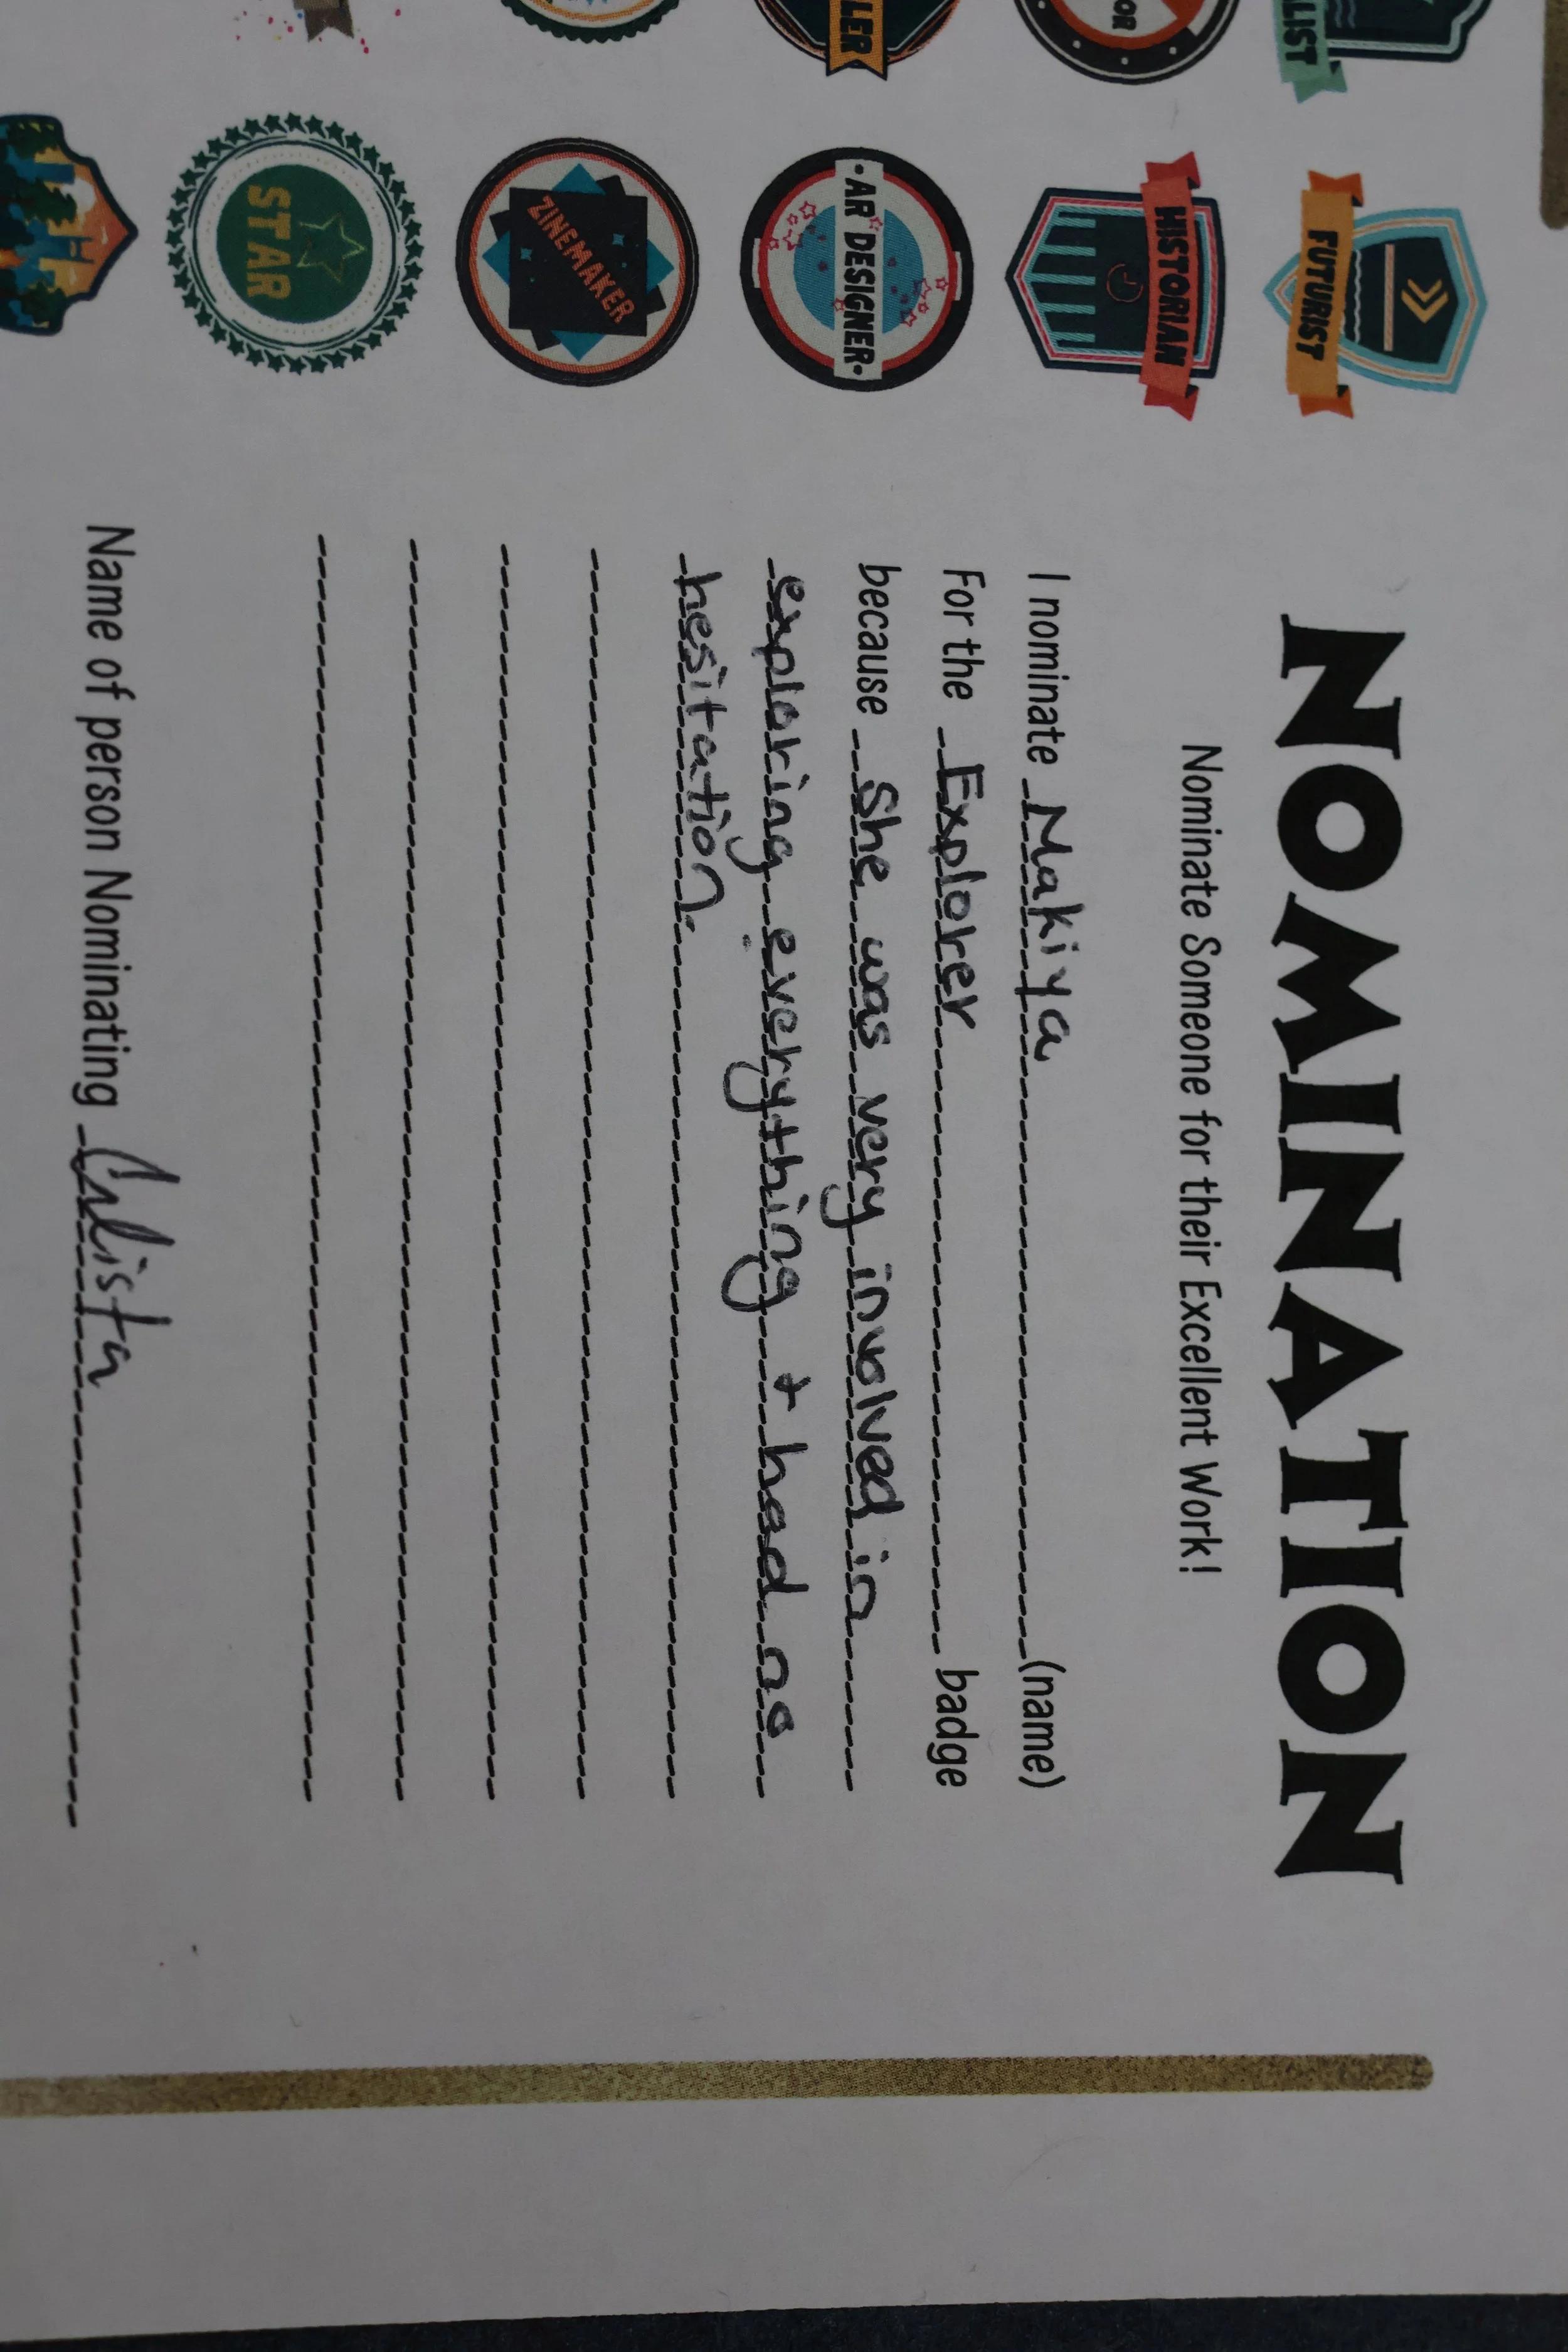 NOMINATION
Nominate Someone for their Excellent Work!
I nominate Makiya (name)
For the Explorer badge
because She was very involved in
exploring everything + had no
hesitation.
Name of person Nominating Calista
LIST
OR
LER
FUTURIST
HISTORIAN
·AR DESIGNER·
ZINEMAKER
STAR